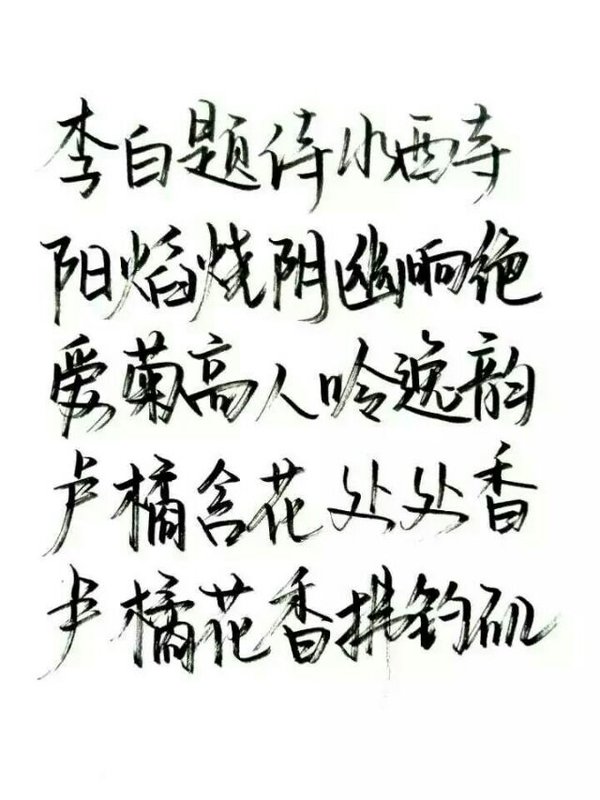 李白题侍水西寺
阳焰烧阴幽响绝
爱菊高人吟逸韵
卢橘含花处处香
卢橘花香拂钓矶